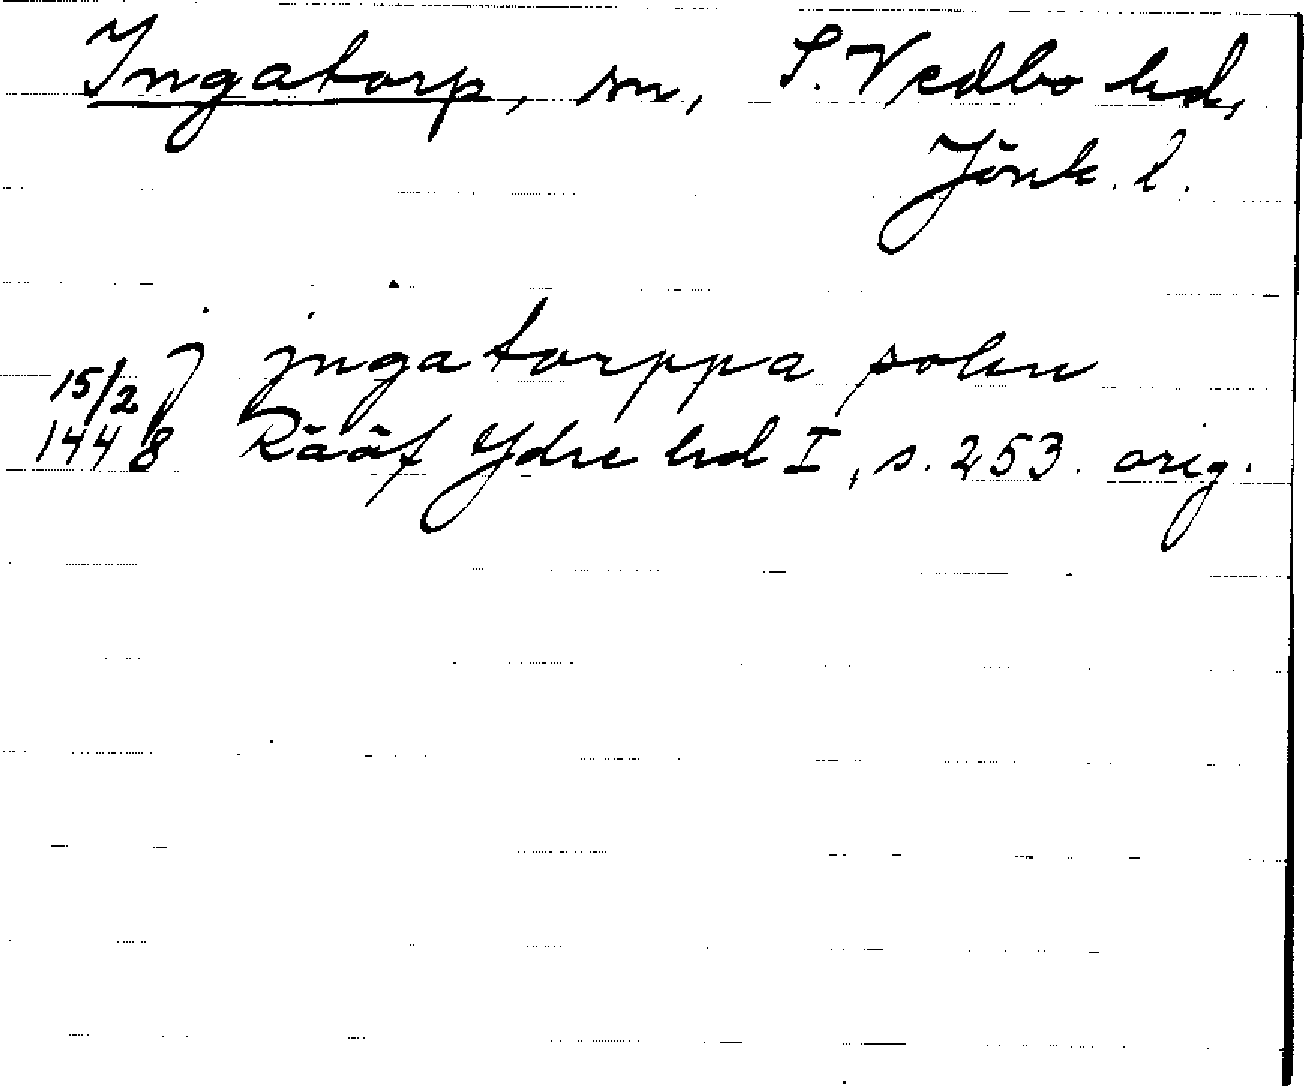 Ingatorp, sn, S. Vedbo hd,
Jönk. l.
15/2 j jngatorppa sokn
1448 Rääf Ydre hd I, s. 253. orig.